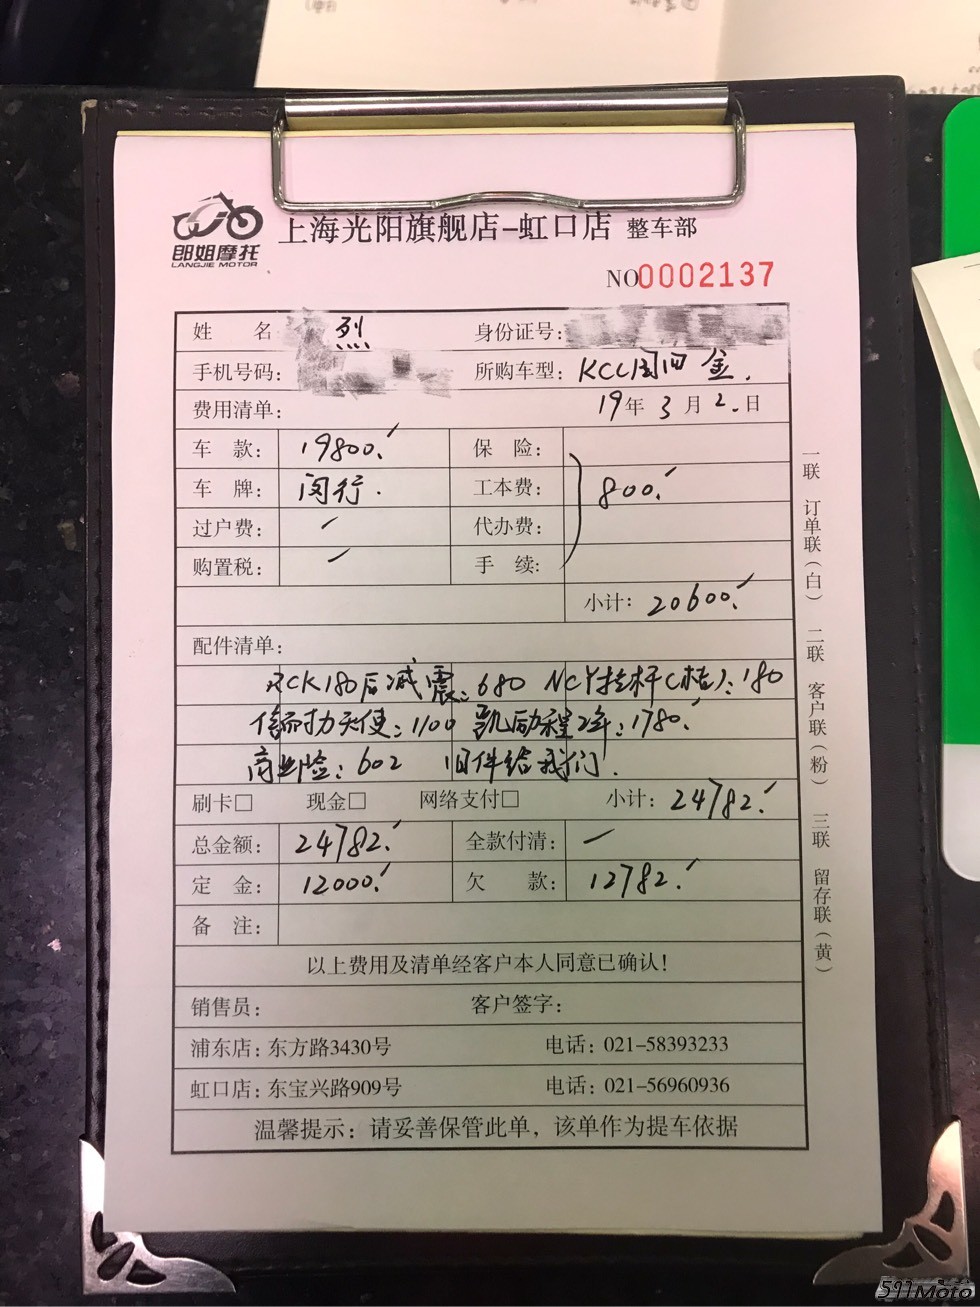 郎姐摩托
LANGJIE MOTOR
上海光阳旗舰店-虹口店 整车部
NO0002137
姓 名 烈 身份证号:
手机号码: 所购车型: 金.
费用清单: 19年3月2.日
车 款: 19800. 保 险:
车 牌: 闵行. 工本费: 800.
过户费: 代办费:
购置税: 手 续:
小计: 20600.
配件清单:
RCK180后减震:680 NCY拉杆(桔):180
天使:1100 凯励程2年:1780.
商业险:602 旧件给我们.
刷卡□ 现金□ 网络支付□ 小计: 24782.
总金额: 24782. 全款付清:
定 金: 12000. 欠 款: 12782.
备 注:
以上费用及清单经客户本人同意已确认!
销售员: 客户签字:
浦东店:东方路3430号 电话: 021-58393233
虹口店:东宝兴路909号 电话: 021-56960936
温馨提示: 请妥善保管此单, 该单作为提车依据
一联 订单联(白) 二联 客户联(粉) 三联 留存联(黄)
591Moto